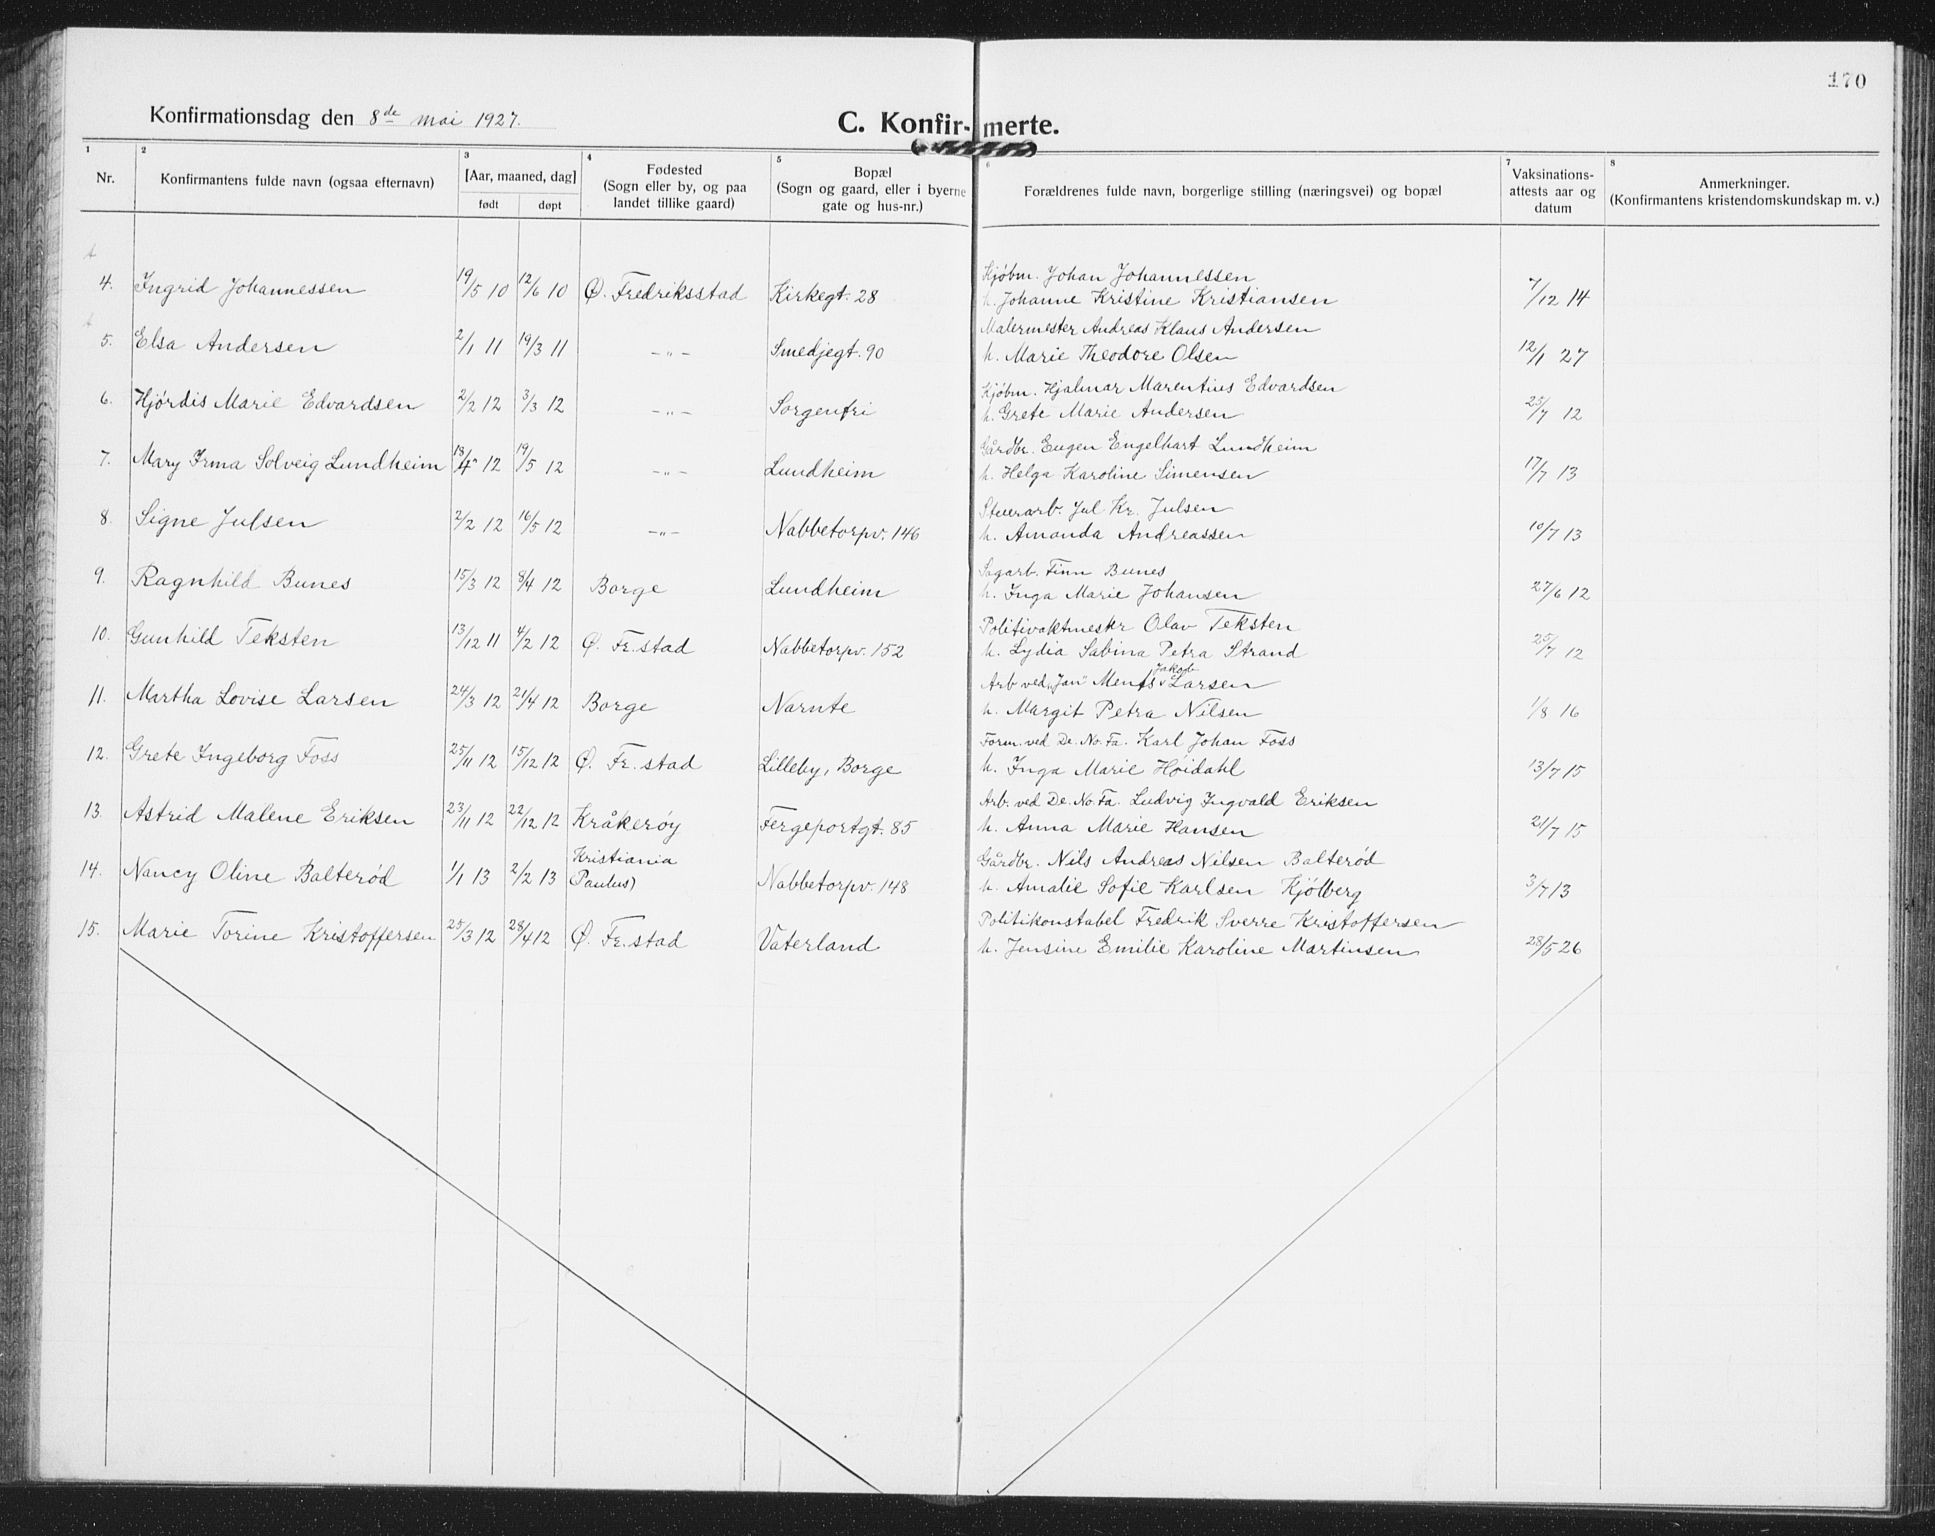 170
Konfirmationsdag den 8de mai 1927.
C. Konfir-merte.
1 2 3 4 5 6 7 8
Nr. Konfirmantens fulde navn (ogsaa efternavn) [Aar, maaned, dag] født døpt Fødested (Sogn eller by, og paa landet tillike gaard) Bopæl (Sogn og gaard, eller i byerne gate og hus-nr.) Forældrenes fulde navn, borgerlige stilling (næringsvei) og bopæl Vaksinations-attests aar og datum Anmerkninger. (Konfirmantens kristendomskundskap m. v.)
Kjøbm. Johan Johannessen
4. Ingrid Johannessen 19/5 10 12/6 10 Ø. Fredriksstad Kirkegt. 28 h. Johanne Kristine Kristiansen 7/12 14
Malermester Andreas Klaus Andersen
5. Elsa Andersen 2/1 11 19/3 11 –"– Smedjegt. 90 h. Marie Theodore Olsen 12/1 27
Kjøbm. Hjalmar Marentius Edvardsen
6. Hjørdis Marie Edvardsen 2/2 12 3/3 12 –"– Sorgenfri h. Grete Marie Andersen 25/7 12
Gårdbr. Eugen Engelhart Lundheim
7. Mary Irma Solveig Lundheim 18/4 12 19/5 12 –"– Lundheim h. Helga Karoline Simensen 17/7 13
Stuerarb. Jul. Kr. Julsen
8. Signe Julsen 2/2 12 16/5 12 –"– Nabbetorpv. 146 h. Amanda Andreassen 10/7 13
Sagarb. Finn Bunes
9. Ragnhild Bunes 15/3 12 8/4 12 Borge Lundheim h. Inga Marie Johansen 27/6 12
Politivaktmester Olav Teksten
10. Gunhild Teksten 13/12 11 4/2 12 Ø. Fr.stad Nabbetorpv. 152 h. Lydia Sabina Petra Strand 25/7 12
Jakob
Arb ved „Jan" Larsen
11. Martha Lovise Larsen 24/3 12 21/4 12 Borge Narnte h. Margit Petra Nilsen 1/8 16
Form. ved De. No. Fa. Karl Johan Foss
12. Grete Ingeborg Foss 25/11 12 15/12 12 Ø. Fr. stad Lilleby, Borge h. Inga Marie Høidahl 13/7 15
Arb. ved De. No. Fa. Ludvig Ingvald Eriksen
13. Astrid Malene Eriksen 23/11 12 22/12 12 Kråkerøy Fergeportgt. 85 h. Anna Marie Hansen 21/7 15
Kristiania Gårdbr. Nils Andreas Nilsen Balterød
14. Nancy Oline Balterød 1/1 13 2/2 13 (Paulus) Nabbetorpv. 148 h. Amalie Sofie Karlsen Kjølberg 3/7 13
Politikonstabel Fredrik Sverre Kristoffersen
15. Marie Torine Kristoffersen 25/3 12 28/4 12 Ø. Fr.stad Vaterland h. Jensine Emilie Karoline Martinsen 28/5 26